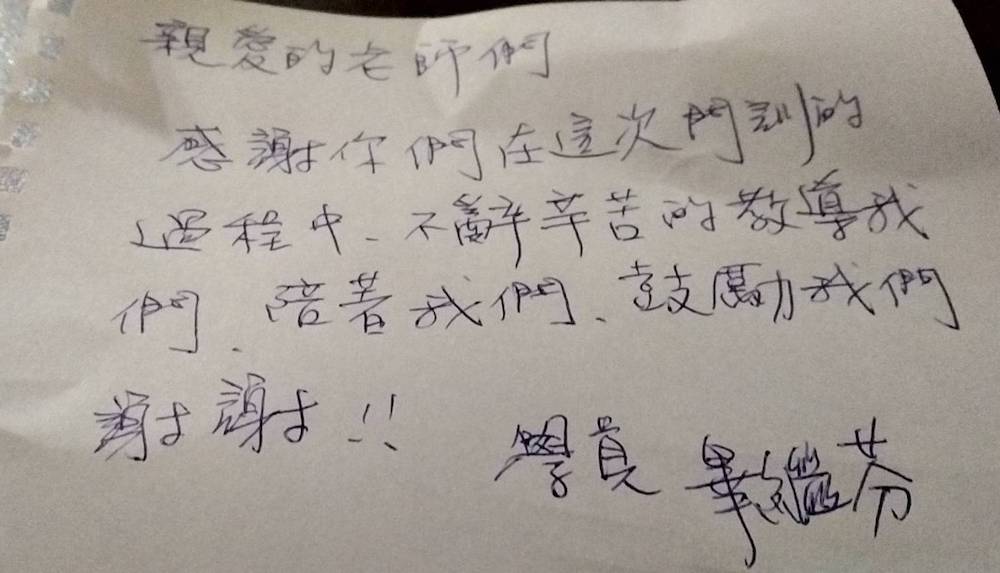 親愛的老師們
感謝你們在這次門訓的
過程中、不辭辛苦的教導我
們、陪著我們、鼓勵我們
謝謝!!
學員 畢 芬